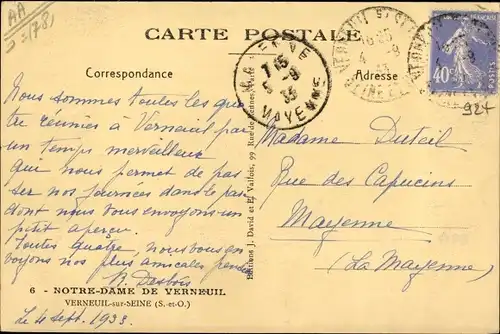 AA
CARTE POSTALE
Correspondance
Adresse
40c
924
7 15
5 - 9
33
MAYENNE
16 25
4 - 9
33
Nous sommes toutes les quatre
réunies à Verneuil par
un temps merveilleux
qui nous permet de pas
ser nos journées dans le parc
dont nous vous envoyons un
petit aperçu.
Toutes quatre, nous vous en
voyons nos plus amicales pensées
Madame Duteil
Rue des Capucins
Mayenne
(La Mayenne)
6 - NOTRE-DAME DE VERNEUIL
VERNEUIL-sur-SEINE (S.-et-O.)
Le 4 Sept. 1933.
Editions J. David et E. Vallois, 99 Rue de Rennes, Paris